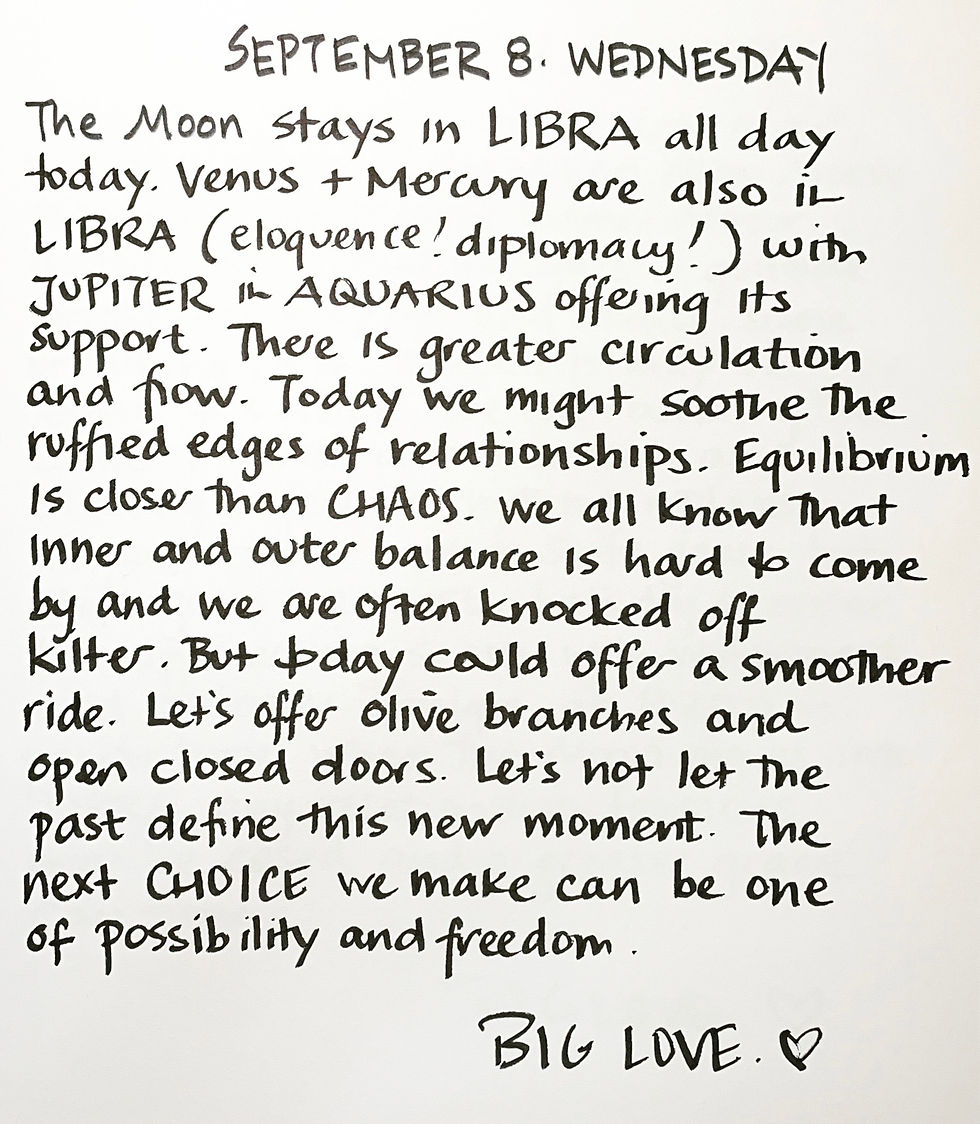 SEPTEMBER 8. WEDNESDAY
The Moon stays in LIBRA all day
today. Venus + Mercury are also in
LIBRA (eloquence! diplomacy!) with
JUPITER in AQUARIUS offering its
support. There is greater circulation
and flow. Today we might soothe the
ruffled edges of relationships. Equilibrium
is closer than CHAOS. We all know that
inner and outer balance is hard to come
by and we are often knocked off
kilter. But today could offer a smoother
ride. Let's offer olive branches and
open closed doors. Let's not let the
past define this new moment. The
next CHOICE we make can be one
of possibility and freedom.
BIG LOVE. ♡